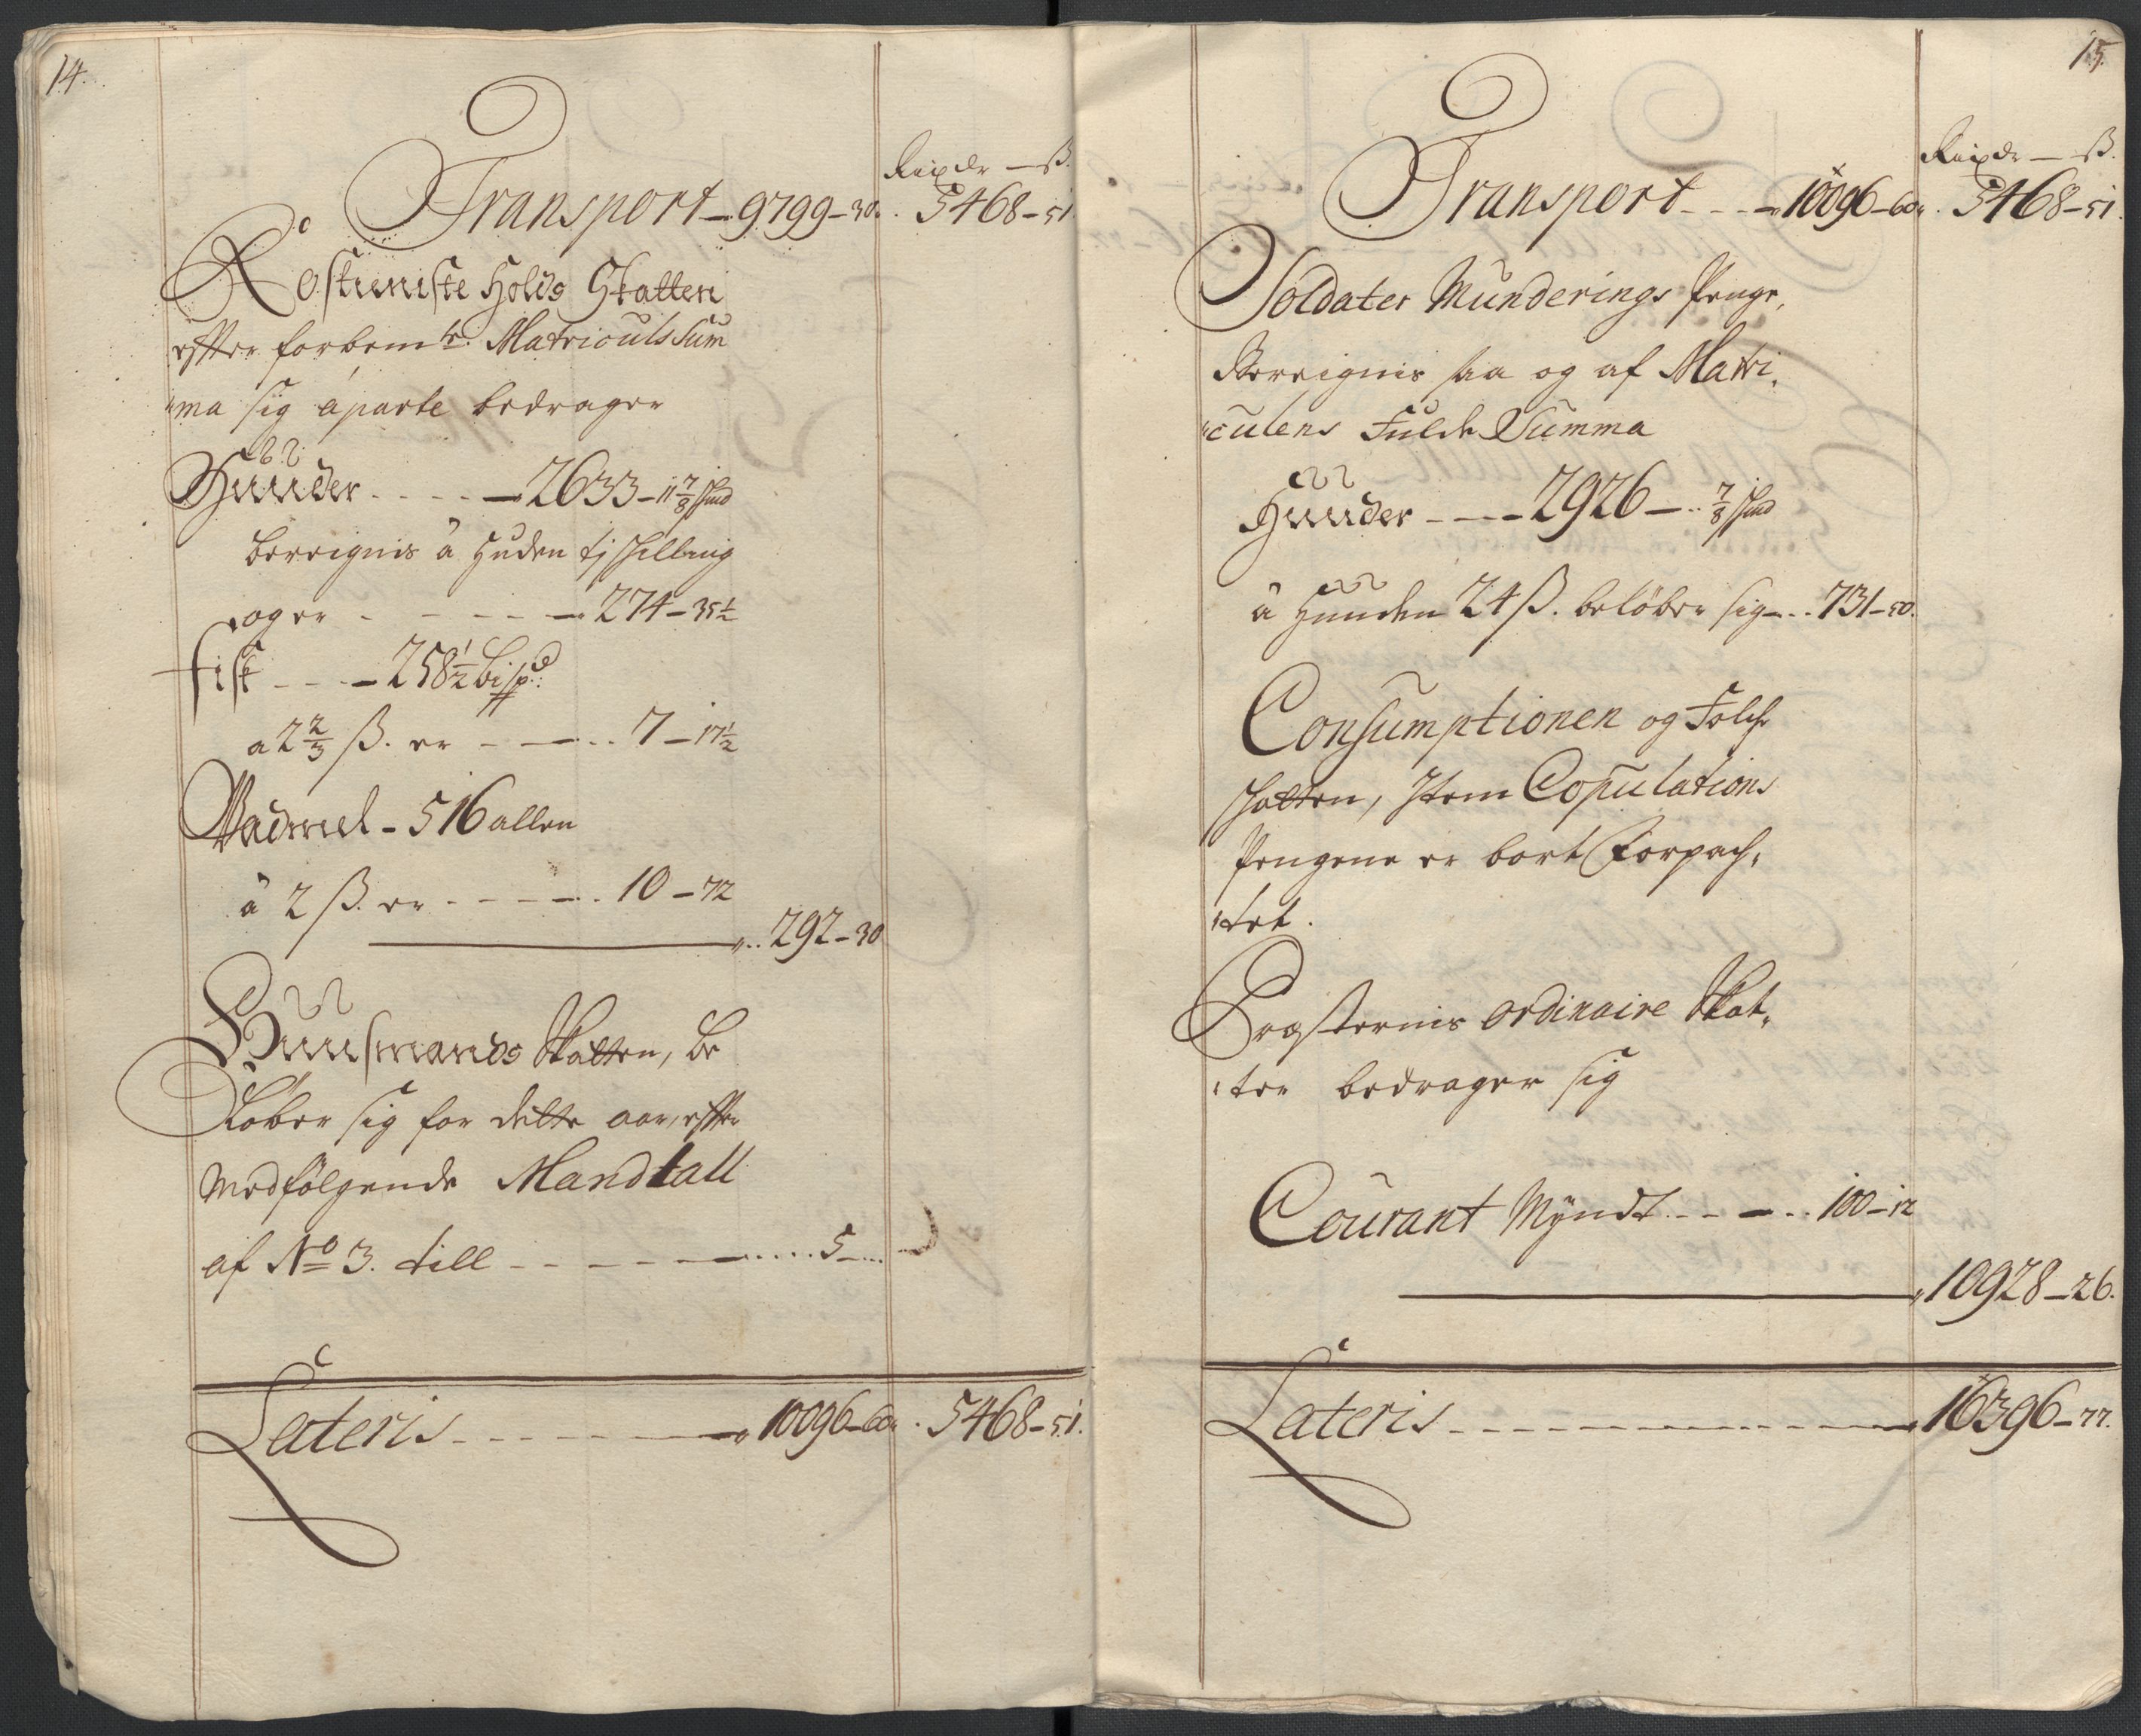 14.
Rixdr — ß.
Transport — 9799 – 30. 5468 – 51
Rostieniste Holds Skatten
effter forbemte. Matriculs Sum
"ma sig áparte bedrager
Huuder - - - - 2633 – 11 7/8 skind
bereignis á Huden tj skilling
og er - - - - - 274 – 35 1/2
Fisk - - - 258 1/2 bispd:
a 2 2/3 ß. er - - - 7 – 17 1/2
Vadmel - 516 allen
á 2 ß. er - - - - 10 – 72
292 – 30
Huusmands Skatten, be
Løber sig for dette aar, effter
Medfølgende Mandtall
af No 3. till - - - - - 5 –
Lateris - - - - - 10096 – 60. 5468 – 51.
15.
Rixdr — ß.
Transport - - - 10096 – 60. 5468 – 51.
Soldater Munderings Penge,
Bereignis saa og af Matri,
"culens Fulde Summa
Huuder - - - 2926 – .. 7/8 skind
á Huuden 24 ß. beløber sig - . . 731 – 50.
Consumptionen og Folche
skatten, Item Copulations
Pengene er bort Forpach,
"tet.
Præsternis ordinaire Skat,
"ter bedrager sig
Courant Myndt - - - . . 100 – 12
10928 – 26.
Lateris - - - - - - - 16396 – 77.